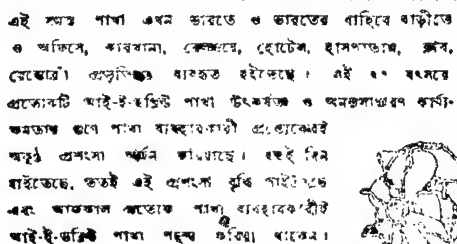 এই সমস্ত পাখা এখন ভারতে ও ভারতের বাহিরে বাড়ীতে
ও অফিসে, কারখানা, রেলওয়ে, হোটেল, হাসপাতাল, ক্লাব,
রেস্তোরাঁ প্রভৃতিতে ব্যবহৃত হইতেছে। এই ২৭ বৎসরে
প্রত্যেকটি আই-ই-ডব্লিউ পাখা উৎকর্ষতা ও অনন্যসাধারণ কার্য্য-
ক্ষমতার গুণে পাখা ব্যবহারকারী প্রত্যেকেরই
অকুণ্ঠ প্রশংসা অর্জন করিয়াছে। যতই দিন
যাইতেছে, ততই এই প্রশংসা বৃদ্ধি পাইতেছে
এবং আজকাল প্রত্যেক পাখা ব্যবহারকারীই
আই-ই-ডব্লিউ পাখা পছন্দ করিয়া থাকেন।